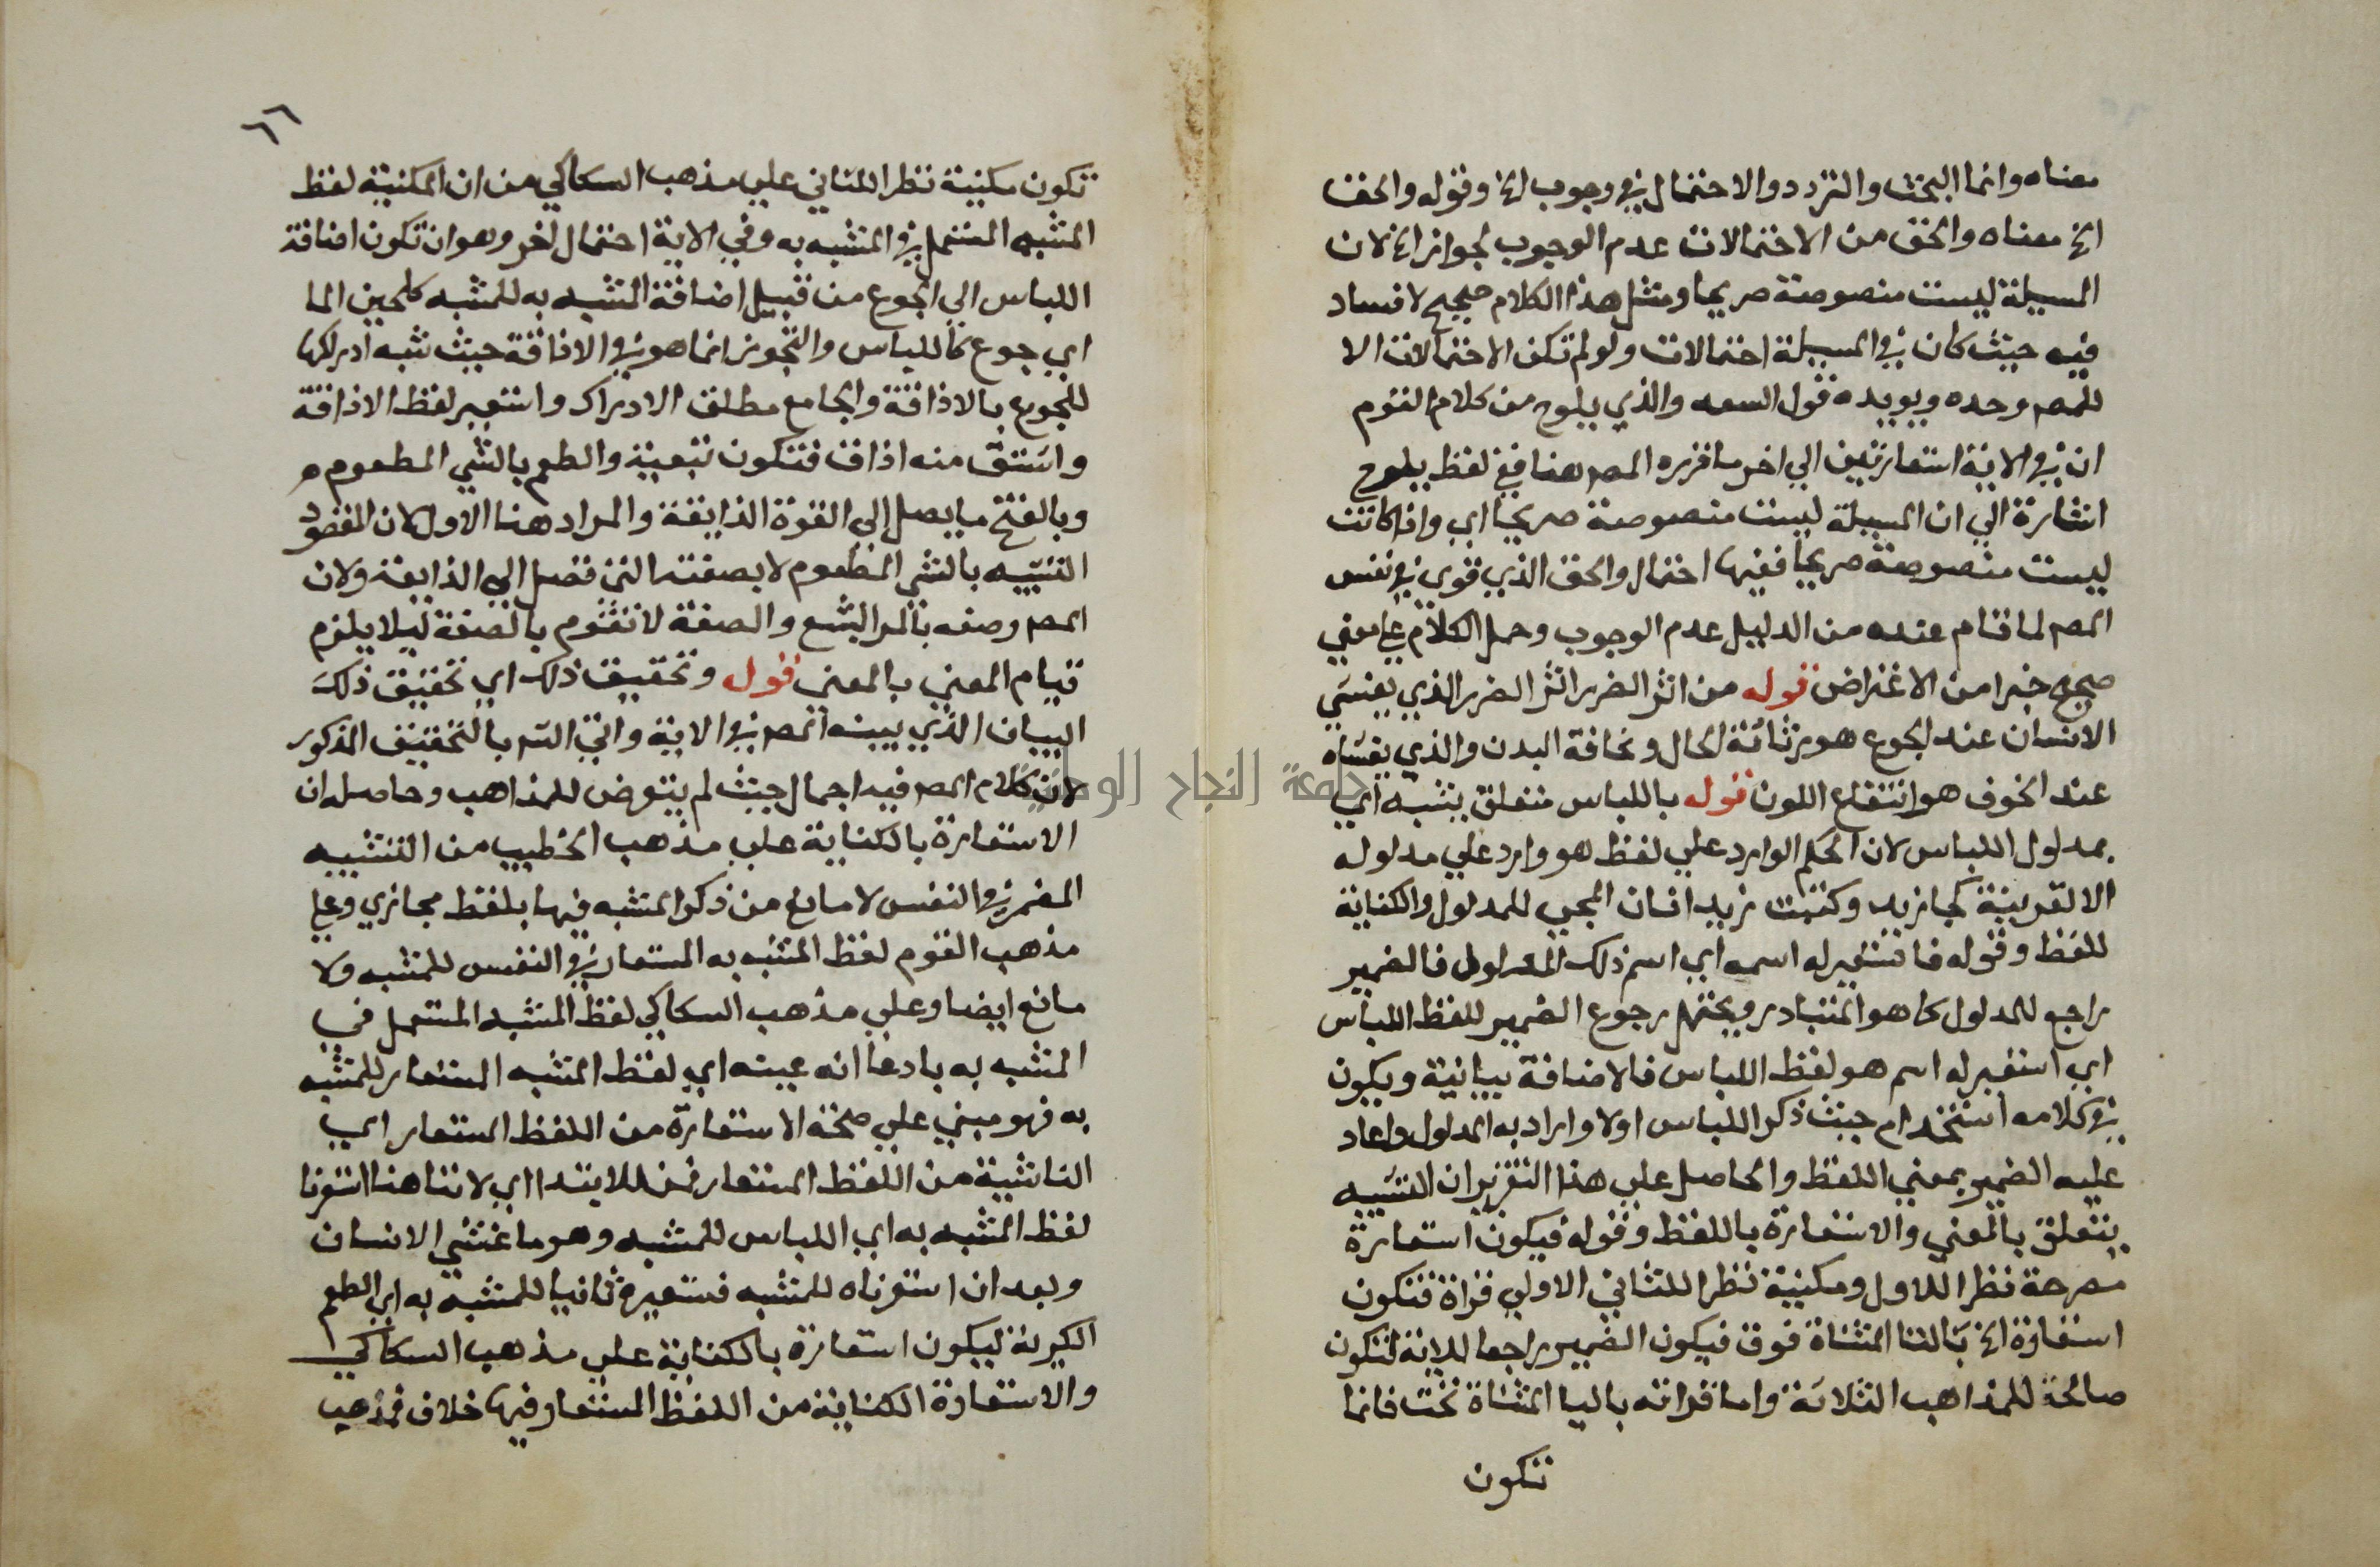 معناه وانما البحث والتردد والاحتمال في وجوب الخ وقوله والحق
الخ معناه والحق من الاحتمالات عدم الوجوب لجواز الخ لان
المسيلة ليست منصوصة صريحا ومثل هذا الكلام صحيح لا فساد
فيه حيث كان في المسيلة احتمالات ولو لم تكن الاحتمالات الا
للمص وحده ويويده قول السعد والذي يلوح من كلام القوم
ان في الاية استعارتين الي اخر ما قرره المص هنا ففي لفظ يلوح
اشارة الي ان المسيلة ليست منصوصة صريحا اي واذا كانت
ليست منصوصة صريحا ففيها احتمال والحق الذي قوي في نفس
المص لما قام عنده من الدليل عدم الوجوب وحمل الكلام علي معني
صحيح خيرا من الاعتراض قوله من اثر الضرر اثر الضرر الذي يغشي
الانسان عند الجوع هو رثاثة الحال ونحافة البدن والذي يغشاه
عند الخوف هو انتقاع اللون قوله باللباس متعلق بشبه اي
بمدلول اللباس لان الحكم الوارد علي لفظ هو وارد علي مدلوله
الا لقرينة كجا زيد وكتبت زيد فان المجي للمدلول والكتابة
للفظ وقوله فاستعير له اسمه اي اسم ذلك المدلول فالضمير
راجع للمدلول كما هو المتبادر ويحتمل رجوع الضمير للفظ اللباس
اي استعير له اسم هو لفظ اللباس فالاضافة بيانية ويكون
في كلامه استخدام حيث ذكر اللباس اولا واراد به المدلول واعاد
عليه الضمير بمعني اللفظ والحاصل علي هذا التقرير ان التشبيه
يتعلق بالمعني والاستعارة باللفظ وقوله فيكون استعارة
مصرحة نظرا للاول ومكنية نظرا للثاني الاولي قراة فتكون
استعارة الخ بالتا المثناة فوق فيكون الضمير راجعا للاية لتكون
صالحة للمذاهب الثلاثة واما قراته باليا المثناة تحت فانما
تكون
٦٦
تكون مكنية نظرا للثاني علي مذهب السكاكي من ان المكنية لفظ
المشبه المستعمل في المشبه به وفي الاية احتمال اخر وهو ان تكون اضافة
اللباس الي الجوع من قبيل اضافة المشبه به للمشبه كلجين الما
اي جوع كاللباس والتجوز انما هو في الاذاقة حيث شبه ادراكها
للجوع بالاذاقة والجامع مطلق الادراك واستعير لفظ الاذاقة
واشتق منه اذاق فتكون تبعية والطعم بالشي المطعوم
وبالفتح ما يصل الي القوة الذايقة والمراد هنا الاول لان المقصود
التشبيه بالشي المطعوم لا بصفته التي تصل الي الذايقة ولان
المص وصفه بالمر البشع والصفة لا تقوم بالصفة ليلا يلزم
قيام المعني بالمعني قوله وتحقيق ذلك اي تحقيق ذلك
البيان الذي بينه المص في الاية واتي الش بالتحقيق المذكور
لان كلام المص فيه اجمال حيث لم يتعرض للمذاهب وحاصله ان
الاستعارة بالكناية علي مذهب الخطيب من التشبيه
المضمر في النفس لا مانع من ذكر المشبه فيها بلفظ مجازي وعلي
مذهب القوم لفظ المشبه به المستعار في النفس للمشبه ولا
مانع ايضا وعلي مذهب السكاكي لفظ المشبه المستعمل في
المشبه به بادعا انه عينه اي لفظ المشبه المستعار للمشبه
به فهو مبني علي صحة الاستعارة من اللفظ المستعار اي
الناشية من اللفظ المستعار فمن للابتدا اي لاننا هنا استعرنا
لفظ المشبه به اي اللباس للمشبه وهو ما غشي الانسان
وبعد ان استعرناه للمشبه فنستعيره ثانيا للمشبه به اي الطعم
الكريه ليكون استعارة بالكناية علي مذهب السكاكي
والاستعارة الكناية من اللفظ المستعار فيها خلاف فمذهب
جامعة النجاح الوطنية